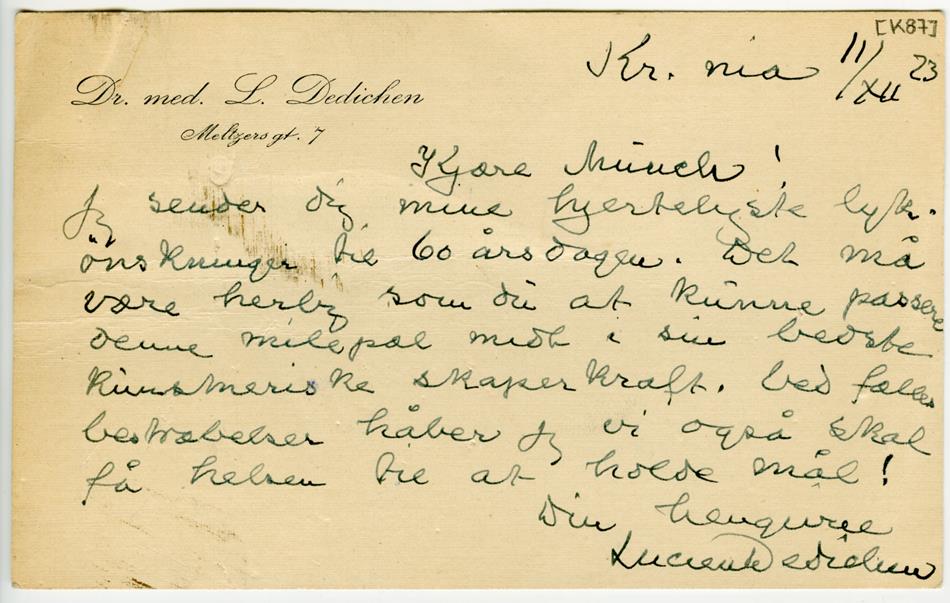 [K87]
Kr. nia 11/XII 23
Dr. med. L. Dedichen
Meltzers gt. 7
Kjære Münch!
Jeg sender dig mine hjerteligste lyk-
önskninger til 60 årsdagen. Det må
være herlig som du at kunne passere
denne milepæl midt i sin bedste
kunstneriske skaperkraft. Ved fælles
bestræbelser håber jeg vi også skal
få helsen til at holde mål!
Din hengivne
Lucien Dedichen